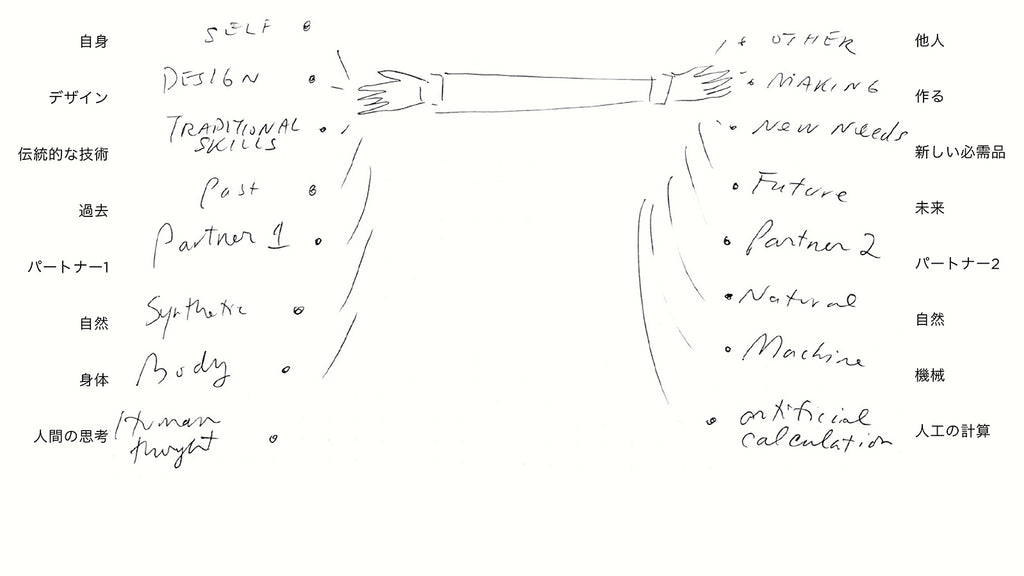 自身 SELF OTHER 他人
デザイン DESIGN MAKING 作る
伝統的な技術 TRADITIONAL NEW NEEDS 新しい必需品
SKILLS
過去 Past Future 未来
パートナー1 Partner 1 Partner 2 パートナー2
自然 Synthetic Natural 自然
身体 Body Machine 機械
人間の思考 Human artificial 人工の計算
thought calculation